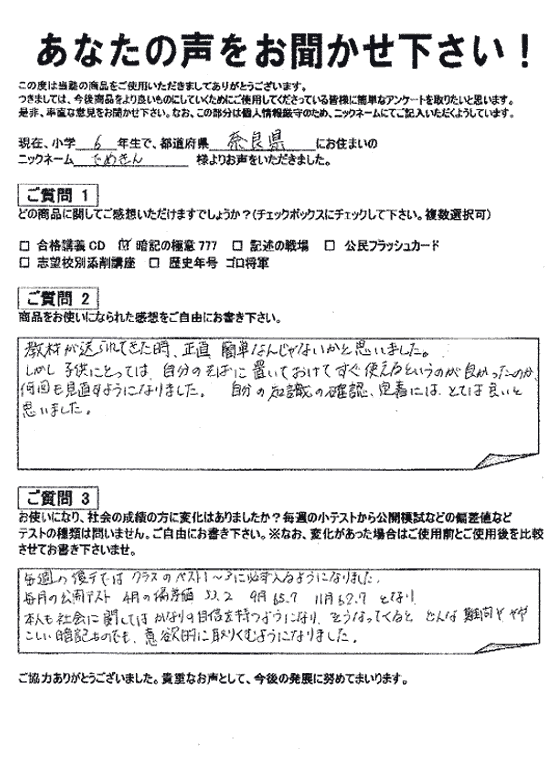 あなたの声をお聞かせ下さい！
この度は当塾の商品をご使用いただきましてありがとうございます。
つきましては、今後商品をより良いものにしていくためにご使用してくださっている皆様に簡単なアンケートを取りたいと思います。
是非、率直な意見をお聞かせ下さい。なお、この部分は個人情報厳守のため、ニックネームにてご記入いただくようしています。
現在、小学 6 年生で、都道府県 奈良県 にお住まいの
ニックネーム でめきん 様よりお声をいただきました。
ご質問 1
どの商品に関してご感想いただけますでしょうか？（チェックボックスにチェックして下さい。複数選択可）
□ 合格講義CD ☑ 暗記の極意777 □ 記述の戦場 □ 公民フラッシュカード
□ 志望校別添削講座 □ 歴史年号 ゴロ将軍
ご質問 2
商品をお使いになられた感想をご自由にお書き下さい。
教材が送られてきた時、正直 簡単なんじゃないかと思いました。
しかし 子供にとっては、自分のそばに 置いておけて すぐ 使えるというのが 良かったのか、
何回も見直すようになりました。 自分の知識の確認、定着には、とても良いと
思いました。
ご質問 3
お使いになり、社会の成績の方に変化はありましたか？毎週の小テストから公開模試などの偏差値など
テストの種類は問いません。ご自由にお書き下さい。※なお、変化があった場合はご使用前とご使用後を比較
させてお書き下さいませ。
毎週の復テでは クラスのベスト1～3に必ず入るようになりました。
毎月の公開テスト 4月の偏差値 53.2 9月 65.7 11月 62.9 となり
本人も社会に関しては かなりの自信を持つようになり、そうなってくると どんな 難問や やや
こしい暗記ものでも、意欲的に取りくむようになりました。
ご協力ありがとうございました。貴重なお声として、今後の発展に努めてまいります。